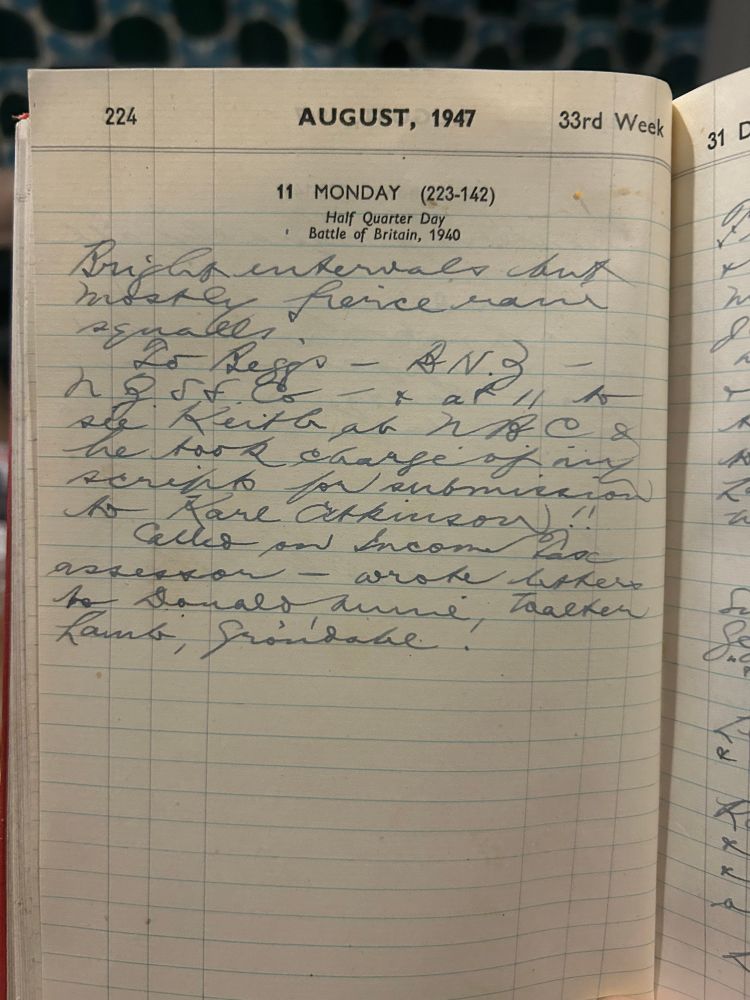 224 AUGUST, 1947 33rd Week
11 MONDAY (223-142)
Half Quarter Day
Battle of Britain, 1940
Bright intervals but
mostly fierce rain
squalls.
To Beggs — B.N.Z —
N.Z. S.S. Co — & at 11 to
see Keith at NBC &
he took charge of my
scripts for submission
to Karl Atkinson) !!
Called on Income Tax
assessor — wrote letters
to Donald,
Lamb, Gröndahl.
31 D